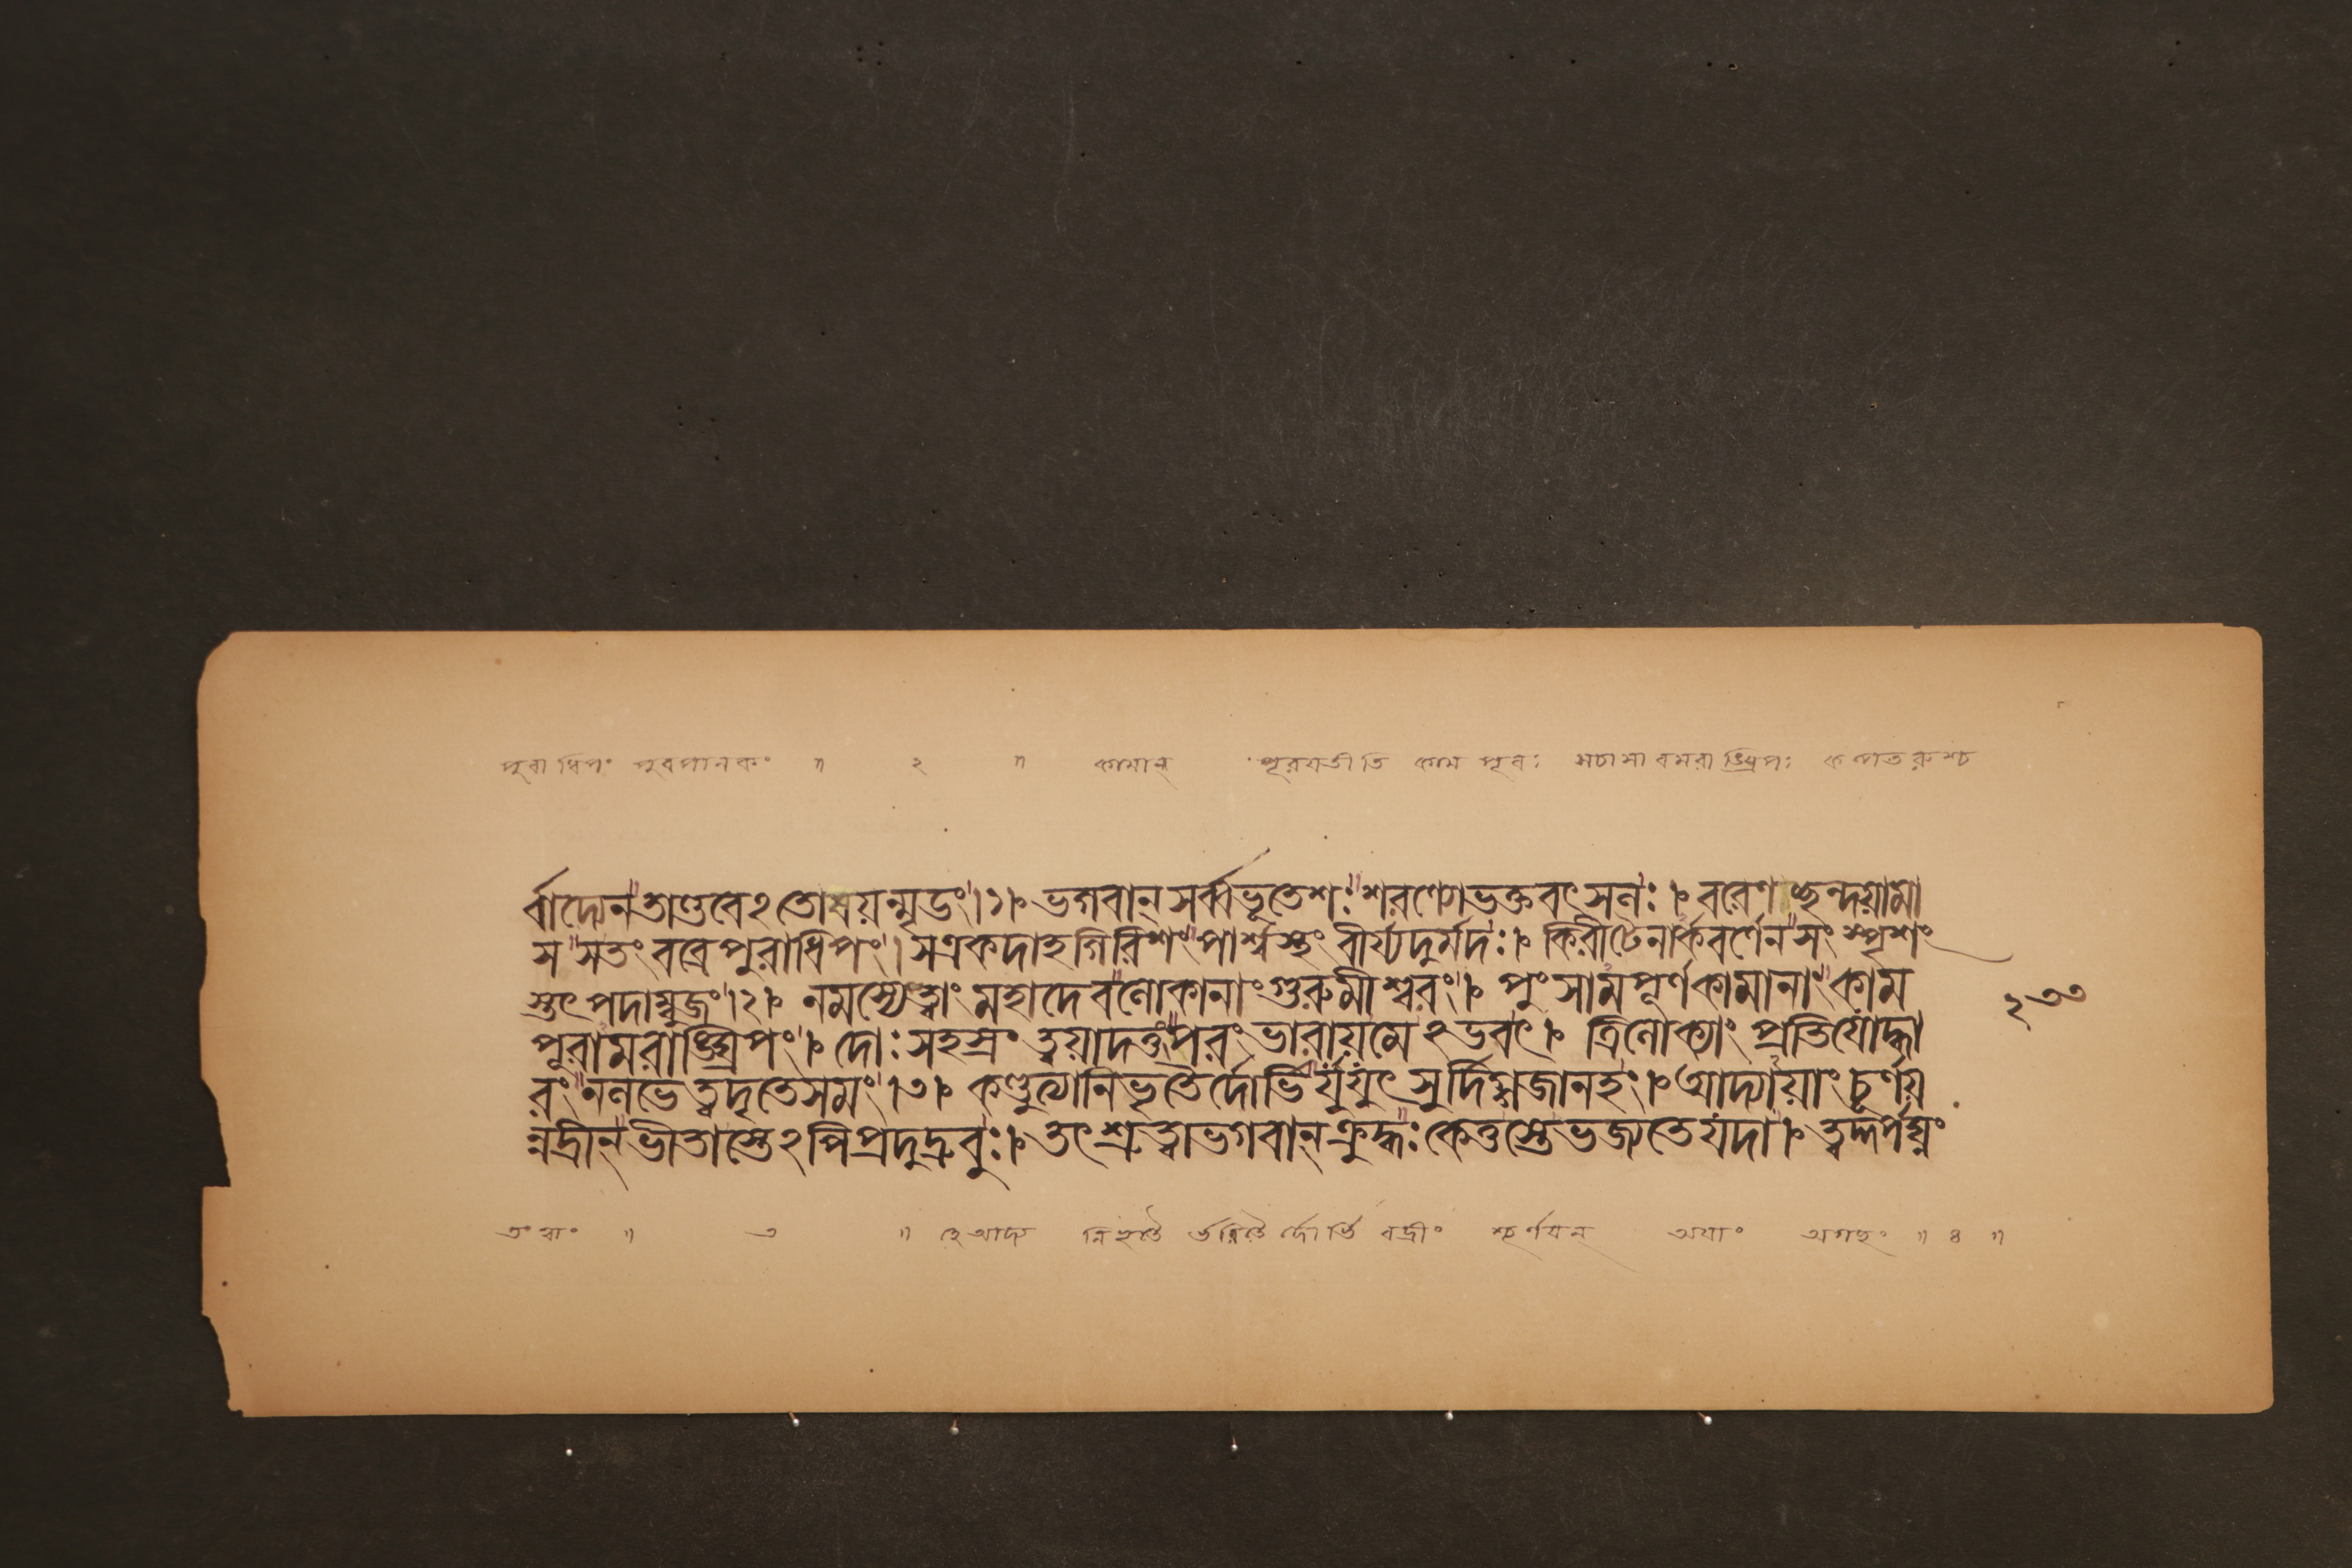 পুৰাধিপং পুৰপালকং ॥ ২ ॥ কামান্ পূরয়তীতি কাম পূৰঃ মচামাবমরাঙ্ঘ্রিপঃ কল্পতরুশ্চ
র্বাদ্যেনতাণ্ডবেঽতোষয়ন্মৃডং।১। ভগবান্ সর্ব্বভূতেশঃ শরণ্যোভক্তবৎসলঃ। বরেণচ্ছন্দয়ামা
স সতং বব্রেপুরাধিপং। সএকদাহগিরিশং পার্শ্বস্থং বীর্য্যদুর্মদঃ। কিরীটেনার্কবর্ণেন সং স্পৃশং
স্তৎপদাম্বুজং।২। নমস্যেত্বাং মহাদেবলোকানাং গুরুমীশ্বরং। পুংসামপূর্ণকামানাং কাম
পূরামরাঙ্ঘ্রিপং। দোঃসহস্রং ত্বয়াদত্তং পরং ভারায়মেঽভবৎ। ত্রিলোক্যাং প্রতিযোদ্ধা
রং নলভেত্বদৃতেসমং।৩। কণ্ডুত্যানিভৃতৈর্দোর্ভির্যুযুৎসুর্দিগ্গজানহং। আদ্যায়াং চূর্ণয়
ন্নদ্রীন্ ভীতাস্তেঽপিপ্রদুদ্রুবুঃ। তৎশ্রুত্বাভগবান্ক্রুদ্ধঃ কেতুস্তেভজ্যতেযদা। ত্বদ্দর্পঘ্নং
২৩৩
তং ত্বাং ॥ ৩ ॥ হে আদ্য নিভৃতৈ র্ভরিতৈ র্দোর্ভি ৰদ্রীং শ্চূর্ণয়ন্ অযাং অগহং ॥ ৪ ॥